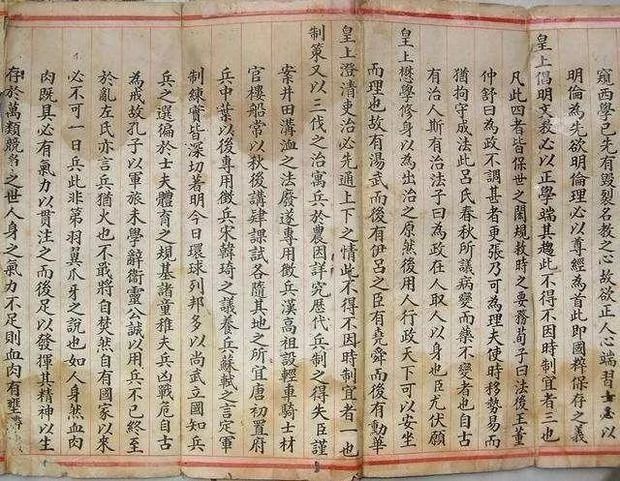 窺西學已先有毀裂名教之心故欲正人心端習士必以
明倫為先欲明倫理必以尊經為首此即國粹保存之義
皇上倡明文教必以正學端其趨此不得不因時制宜者三也
凡此四者皆保世之閎規救時之要務荀子曰法後王董
仲舒曰為政不調甚者更張乃可為理夫使時移勢易而
猶拘守成法此呂氏春秋所譏病變而藥不變者也自古
有治人斯有治法子曰為政在人取人以身也臣尤伏願
皇上懋學修身以為出治之原然後用人行政天下可以安坐
而理也故有湯武而後有伊呂之臣有堯舜而後有勳華
皇上澄清吏治必先通上下之情此不得不因時制宜者一也
制策又以三代之治寓兵於農因詳究歷代兵制之得失臣謹
案井田溝洫之法廢遂專用徵兵漢高祖設輕車騎士材
官樓船常以秋後講肄課試各隨其地之所宜唐初置府
兵中葉以後專用徵兵宋韓琦之議養兵蘇軾之言定軍
制練實皆深切著明今日環球列邦多以尚武立國知兵
兵之選徧於士夫體育之規基諸童稚夫兵凶戰危自古
為戒故孔子以軍旅未學辭衛靈公誠以用兵不已終至
於亂左氏亦言兵猶火也不戢將自焚然自有國家以來
必不可一日兵此非第羽翼爪牙之說也如人身然血肉
肉既具必有氣力以貫注之而後足以發揮其精神以生
存於萬類競之世人身之氣力不足則血肉有壅